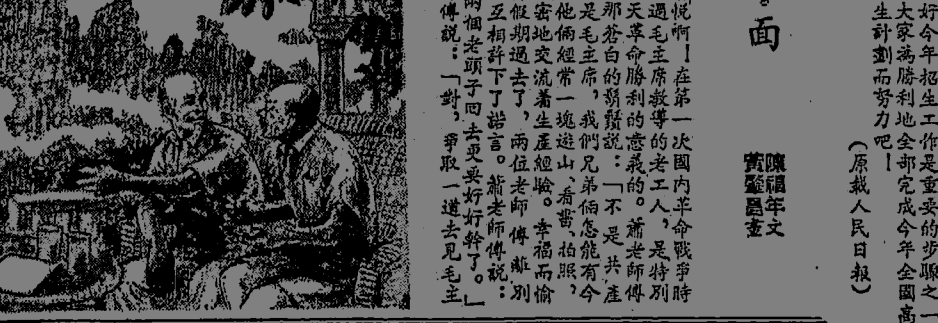 好今年招生工作是重要的步驟之一
大家為勝利地全部完成今年全國高
生計劃而努力吧！
（原載人民日報）
面
陳福年文
悅啊！在第一次國內革命戰爭時
過毛主席教導的老工人，是特別
天革命勝利的意義的。蕭老師傅
那蒼白的鬍鬚說：「不是共產
是毛主席，我們兄弟倆怎能有今
他倆經常一塊遊山、看戲、拍照，
密地交流着生產經驗。幸福而愉
假期過去了，兩位老師傅離別
互相許下了諾言。蕭老師傅說：
兩個老頭子回去更要好好幹了。」
傅說：「對，爭取一道去見毛主